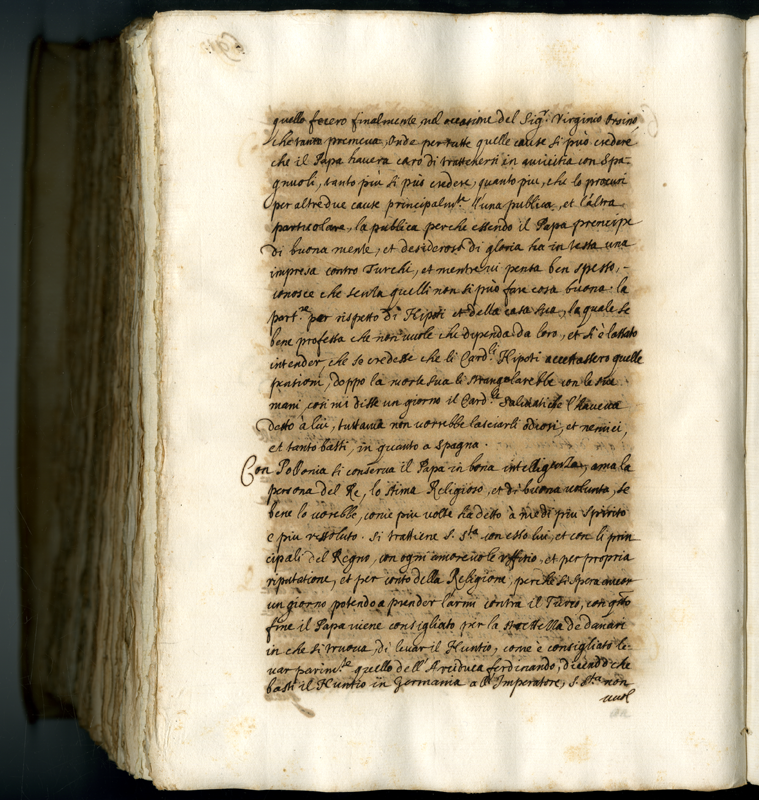 quello fecero finalmente, nel occasione del Sig.r Virginio Orsino,
che tanto premeva, onde per tutte quelle cause si può credere
che il Papa haverà caro di trattenersi in amicitia con Spa-
gnuoli, tanto più si può credere, quanto più, che lo procuri
per altre due cause principalm.te l'una publica, et l'altra
particolare, la publica perche essendo il Papa prencipe
di buona mente, et desideroso di gloria ha in testa una
impresa contro Turchi, et mentre vi pensa ben spesso,
conosce che senza quelli non si può fare cosa buona. la
part.re per rispetto di Nipoti et della casa sua, la quale se
bene professa che non vuole che dipenda da loro, et si è lassato
intender, che so credesse che li Card.li Nipoti accettassero quelle
pensioni, doppo la morte sua li strangolarebbe con le sue
mani, così mi disse un giorno il Card.le Salviati che l'haveva
detto à lui, tuttavia non vorrebbe lasciarli odiosi, et nemici,
et tanto basti, in quanto a Spagna.
Con Polonia si conserva il Papa in bona intelligenza, ama la
persona del Re, lo stima Religioso, et di buona volunta, se
bene lo vorebbe, come più volte ha detto à me di più spirito
e più ressoluto. si trattiene S. S.tà con esso lui, et con li prin
cipali del Regno, con ogni amorevole uffitio, et per propria
riputatione, et per conto della Religione, perche si spera ancor
un giorno potendo a prender l'armi contra il Turco, con q.to
fine il Papa viene consigliato per la strettezza de danari
in che si truova, di levar il Nuntio, come è consigliato le-
var parim.te quello dell'Arciduca ferdinando, dicendo che
basti il Nuntio in Germania all'Imperatore, S. S.tà non
vuol